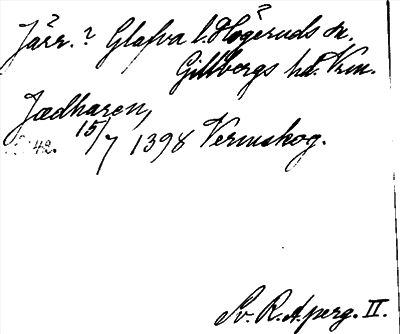 Järr.? Glafva l. Högeruds sn.
Gillbergs hd. Vrm.
Jædharen,
42. 15/7 1398 Vermskog.
Sv. R. A. perg. II.